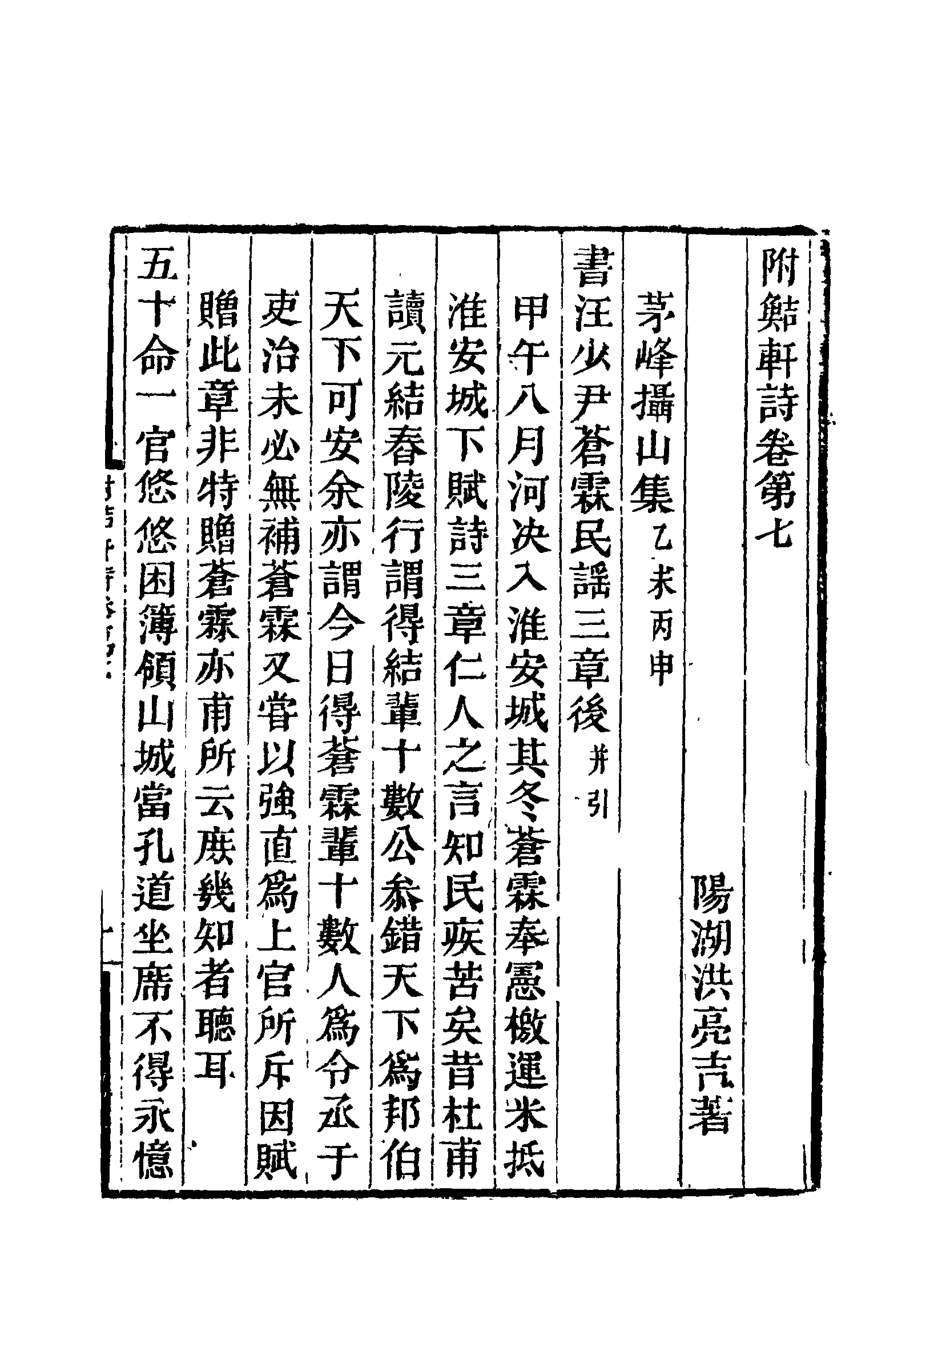 附鮚軒詩卷第七
陽湖洪亮吉著
茅峰攝山集乙未丙申
書汪少尹蒼霖民謡三章後并引
甲午八月河决入淮安城其冬蒼霖奉憲檄運米抵
淮安城下賦詩三章仁人之言知民疾苦矣昔杜甫
讀元結舂陵行謂得結輩十數公叅錯天下爲邦伯
天下可安余亦謂今日得蒼霖輩十數人爲令丞于
吏治未必無補蒼霖又嘗以強直爲上官所斥因賦
贈此章非特贈蒼霖亦甫所云庻幾知者聽耳
五十命一官悠悠困簿領山城當孔道坐席不得永憶